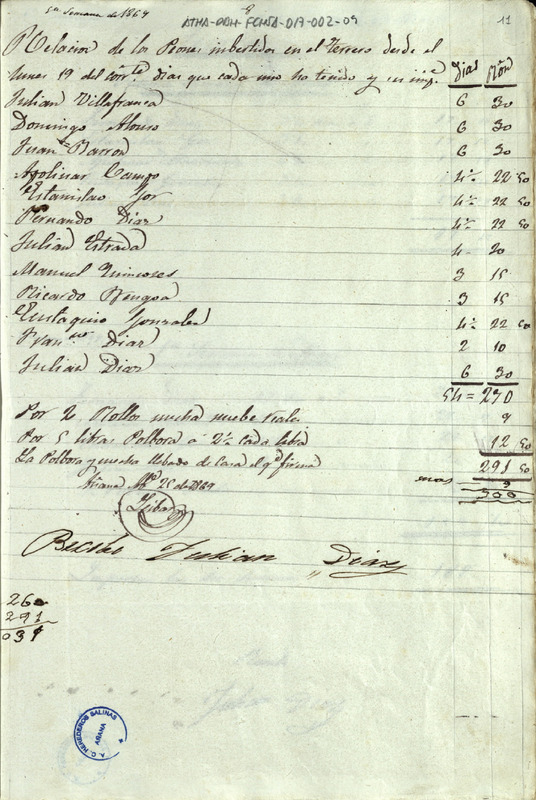 5ta Semana de 1869
ATHA-DAH-FCHSA-017-002-09
11
Relacion de los Peones imbertidos en el Terrero desde el
lunes 19 del corrte dias que cada uno ha tenido y su impe
Dias Rón
Julian Villafranca 6 30
Domingo Alonso 6 30
Juan Barron 6 30
Apolinar Campo 4½ 22 50
Estanislao 4½ 22 50
Fernando Diaz 4½ 22 50
Julian Estrada 4 20
Manuel 3 15
Ricardo 3 15
Eustaquio Gonzalez 4½ 22 50
Franco Diaz 2 10
Julian Diaz 6 30
54 = 270
Por 2 Rollos mecha nuebe reales 9
Por 5 libras Polbora á 2½ cada libra 12 50
La Polbora y mecha llebado de casa el qe firma 291 50
mas 9
Añana 25 de 1869
300
Recibi Julian Diaz
260
291
031
A. C. HEREDEROS SALINAS
AÑANA